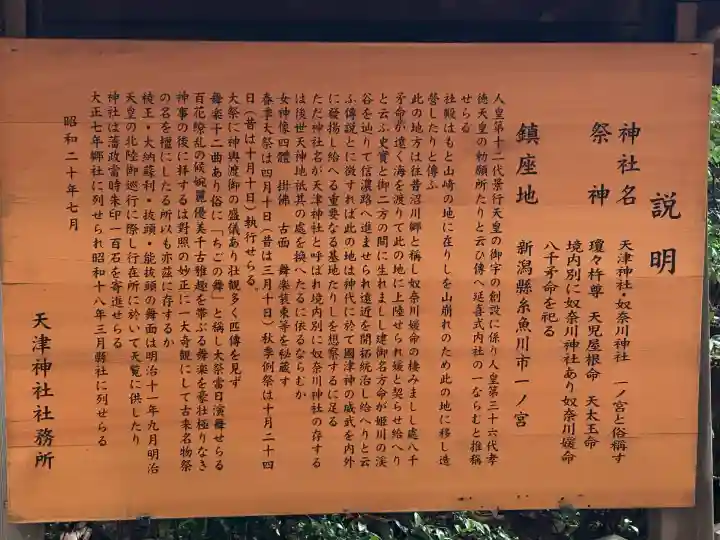 説明
神社名 天津神社・奴奈川神社 一ノ宮と俗稱す
祭神 瓊々杵尊 天児屋根命 天太玉命
境内別に奴奈川神社あり奴奈川媛命
八千矛命を祀る
鎮座地 新潟縣糸魚川市一ノ宮
人皇第十二代景行天皇の御宇の創設に係り人皇第三十六代孝
徳天皇の勅願所たりと云ひ傳へ延喜式内社の一ならむと推稱
せらる
社殿はもと山崎の地に在りしを山崩れのため此の地に移し造
營したりと傳ふ
此の地方は往昔沼川郷と稱し奴奈川媛命の棲みまし處八千
矛命が遠く海を渡りて此の地に上陸せられ媛と契らせ給へり
と云ふ史實と御二方の間に生れましし建御名方命が姫川の渓
谷を辿りて信濃路へ進ませられ遠近を開拓統治し給へりと云
ふ傳説とに徴すれば此の地は神代に於て國津神の威武を内外
に發揚し給へる重要なる基地たりしを想察するに足る
ただ神社名が天津神社と呼ばれ境内別に奴奈川神社の存する
は後世天神地祇其の處を換へたるに依るならむか
女神像四體 掛佛 古面 舞楽装束等を秘蔵す
春季大祭は四月十日（昔は三月十日）秋季例祭は十月二十四
日（昔は十月十日）執行せらる。
大祭に神輿渡御の盛儀あり壮觀多く匹儔を見ず
舞楽十二曲あり俗に「ちごの舞」と稱し大祭當日演舞せらる
百花繚乱の候婉麗優美千古雅趣を帯ぶる舞楽を豪壮極りなき
神事の後に拝するは對照の妙正に一大奇觀にして古来名物祭
の名を擅にしたる所以も亦茲に存するか
稜王・大納蘇利・抜頭・能抜頭の舞面は明治十一年九月明治
天皇の北陸御巡行に際し行在所に於いて天覧に供したり
神社は藩政當時朱印一百石を寄進せらる
大正七年郷社に列せられ昭和十八年三月縣社に列せらる
昭和二十年七月
天津神社社務所